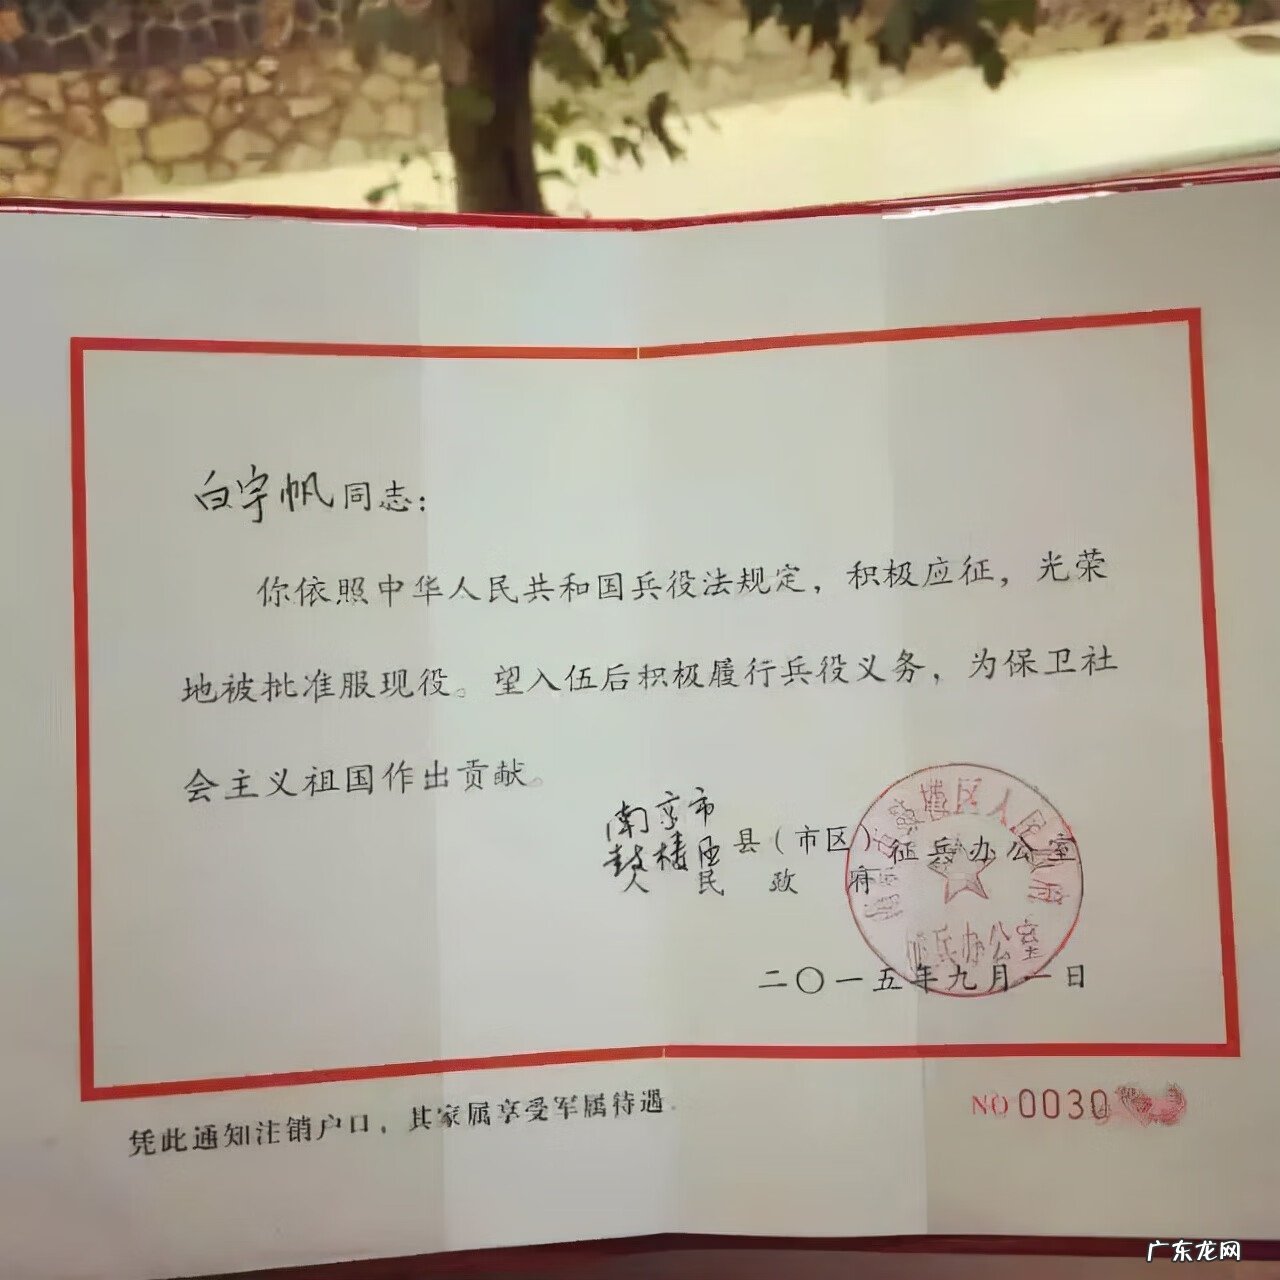 白宇帆同志：
你依照中华人民共和国兵役法规定，积极应征，光荣
地被批准服现役。望入伍后积极履行兵役义务，为保卫社
会主义祖国作出贡献。
南京市
鼓楼区 县（市区）征兵办公室
人民政府
鼓楼区人民政府
征兵办公室
二〇一五年九月一日
凭此通知注销户口，其家属享受军属待遇
NO 0030
广东龙网